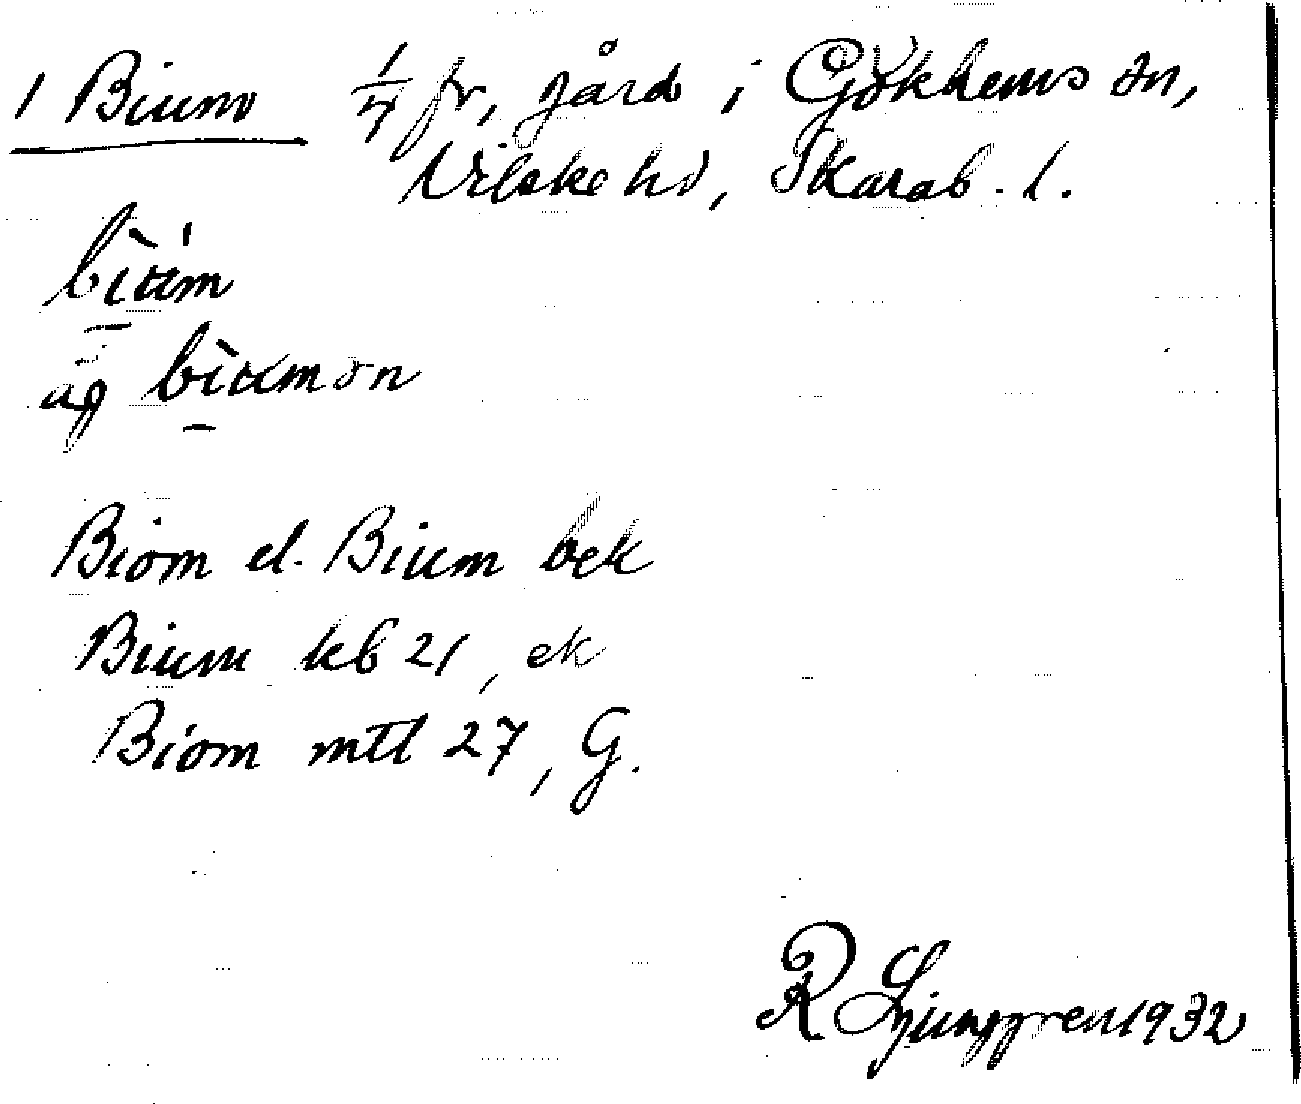 1 Bium 1/4 fr, gård i Gökhems sn,
Vilske hd, Skarab. l.
bìúm
äg bìumən
Biom el. Bium bek
Bium kb 21, ek
Biom mtl 27, G.
R Ljunggren 1932